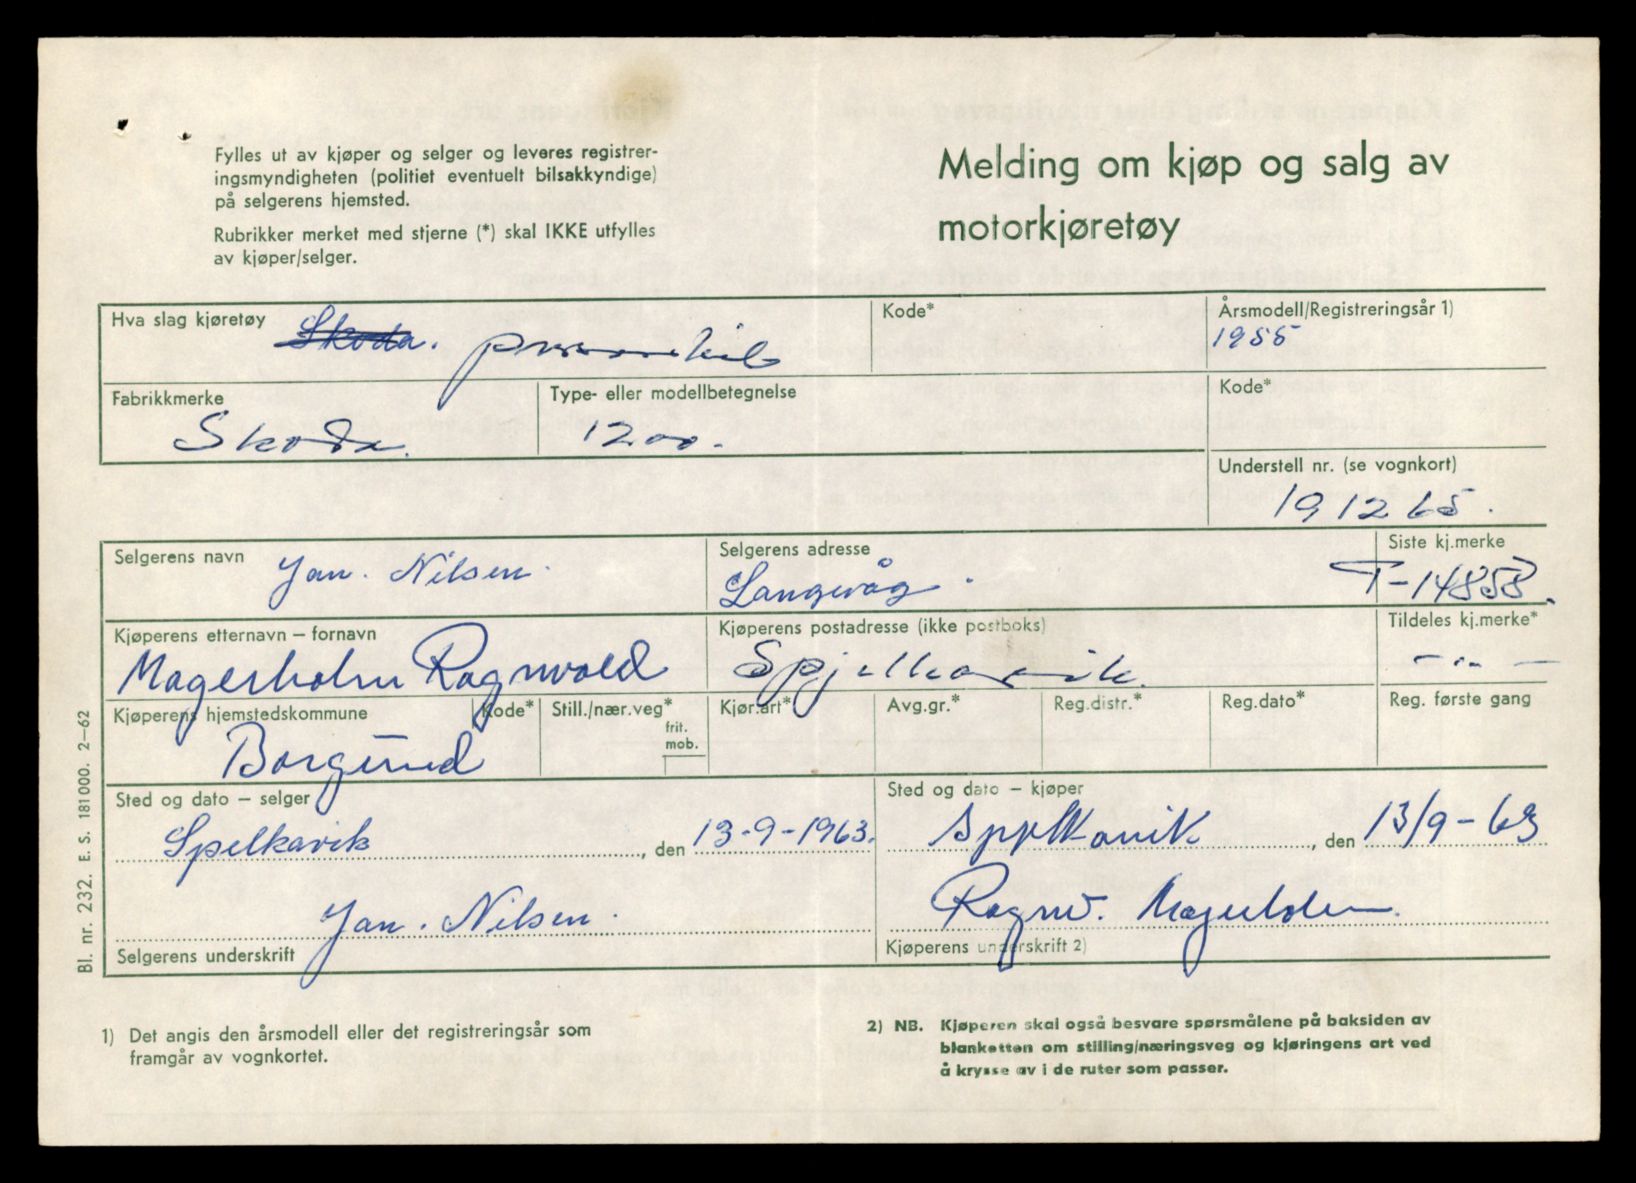 Fylles ut av kjøper og selger og leveres registrer-
ingsmyndigheten (politiet eventuelt bilsakkyndige)
på selgerens hjemsted.
Rubrikker merket med stjerne (*) skal IKKE utfylles
av kjøper/selger.
Melding om kjøp og salg av
motorkjøretøy
Hva slag kjøretøy Skoda. personbil
Kode*
Årsmodell/Registreringsår 1)
1955
Fabrikkmerke
Skoda.
Type- eller modellbetegnelse
1200.
Kode*
Understell nr. (se vognkort)
191265.
Selgerens navn Jan. Nilsen.
Selgerens adresse
Langevåg.
Siste kj.merke
T-14858.
Kjøperens etternavn – fornavn
Magerholm Ragnvald
Kjøperens postadresse (ikke postboks)
Spjelkavik.
Tildeles kj.merke*
— „ —
Kjøperens hjemstedskommune
Borgund
Kode*
Still./nær.veg*
frit.
mob.
Kjør.art*
Avg.gr.*
Reg.distr.*
Reg.dato*
Reg. første gang
Sted og dato – selger
Spelkavik, den 13-9-1963.
Sted og dato – kjøper
Spjelkavik, den 13/9-63
Jan. Nilsen.
Selgerens underskrift
Ragnv. Magerholm.
Kjøperens underskrift 2)
1) Det angis den årsmodell eller det registreringsår som
framgår av vognkortet.
2) NB. Kjøperen skal også besvare spørsmålene på baksiden av
blanketten om stilling/næringsveg og kjøringens art ved
å krysse av i de ruter som passer.
Bl. nr. 232. E. S. 181000. 2–62